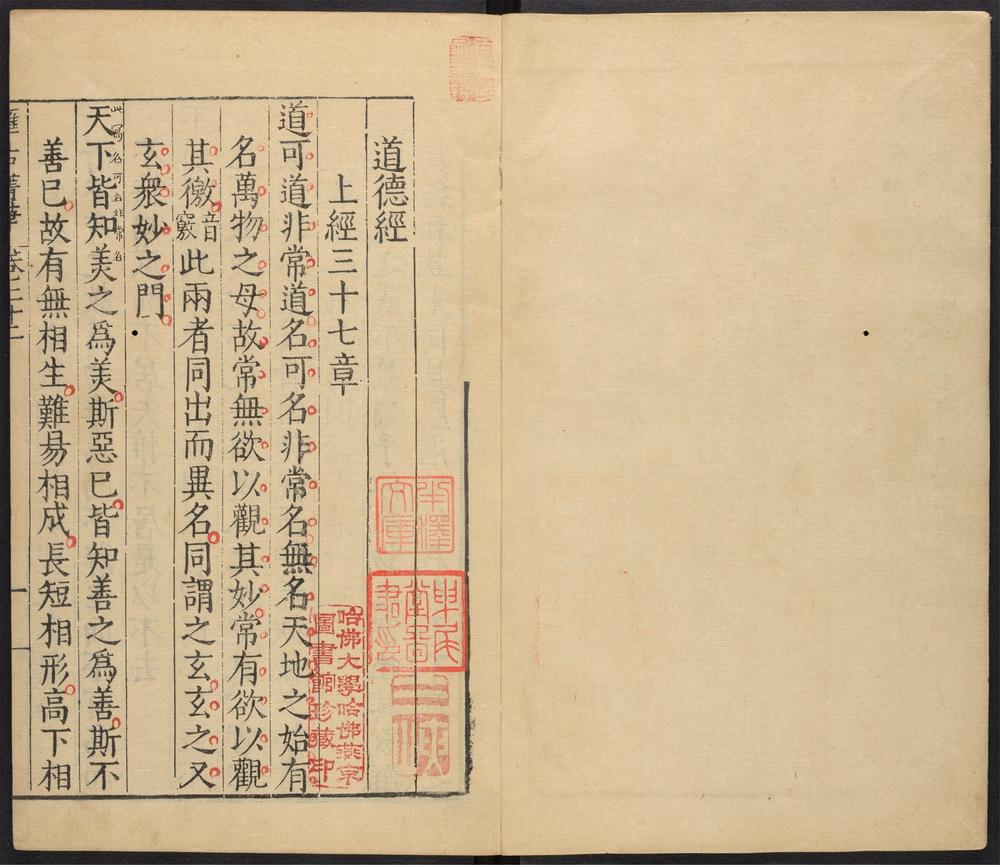 道德經
上經三十七章
道可道非常道名可名非常名無名天地之始有
名萬物之母故常無欲以觀其妙常有欲以觀
其徼音竅此兩者同出而異名同謂之玄玄之又
玄衆妙之門
此寫名可名非常名
天下皆知美之爲美斯惡已皆知善之爲善斯不
善已故有無相生難易相成長短相形高下相
卷之廿二
一
哈佛大學哈佛燕京
圖書館珍藏印
半澤
文庫